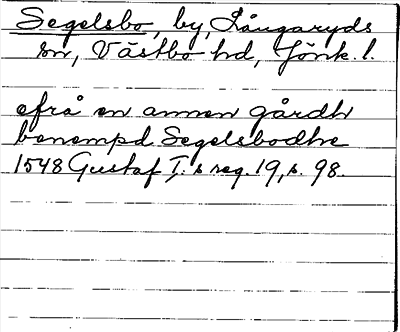 Segelsbo, by, Långaryds
sn, Västbo hd, Jönk. l.
efrå en annen gårdh
benempd Segelsbodhe
1548 Gustaf I:s reg. 19, s. 98.